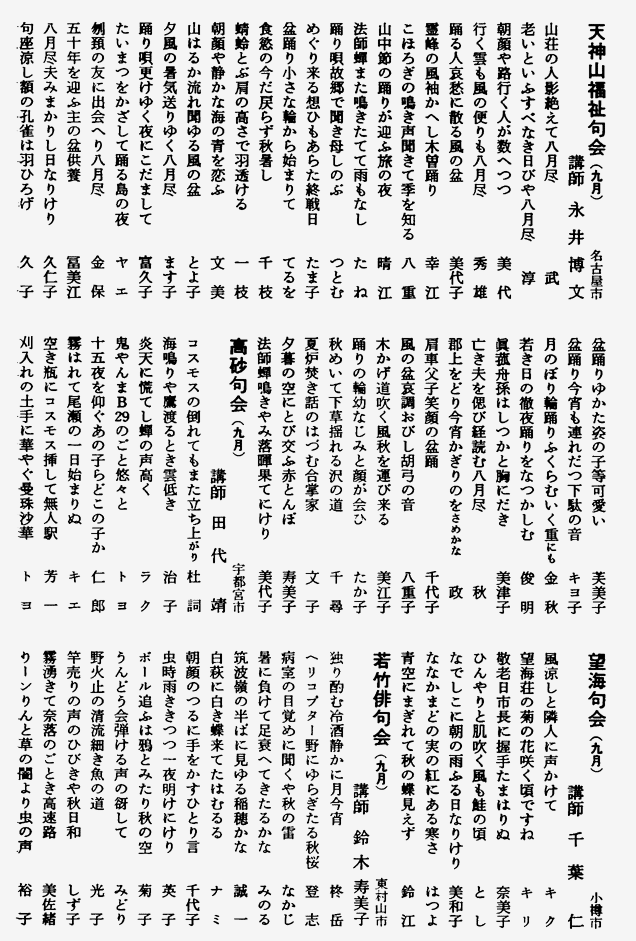 天神山福祉句会（九月）
名古屋市
講師 永井博文
山荘の人影絶えて八月尽 武
老いといふすべなき日びや八月尽 淳
朝顔や路行く人が数へつつ 美代
行く雲も風の便りも八月尽 秀雄
踊る人哀愁に散る風の盆 美代子
霊峰の風袖かへし木曽踊り 幸江
こほろぎの鳴き声聞きて季を知る 八重
山中節の踊りが迎ふ旅の夜 晴江
法師蟬また鳴きたてて雨もなし たね
踊り唄故郷で聞き母しのぶ つとむ
めぐり来る想ひもあらた終戦日 たま子
盆踊り小さな輪から始まりて てるを
食慾の今だ戻らず秋暑し 千枝
蜻蛉とぶ肩の高さで羽透ける 一枝
朝顔や静かな海の青を恋ふ 文美
山はるか流れ聞ゆる風の盆 とよ子
夕風の暑気送りゆく八月尽 ます子
踊り唄更けゆく夜にこだまして 富久子
たいまつをかざして踊る島の夜 ヤエ
刎頚の友に出会へり八月尽 金保
五十年を迎ふ主の盆供養 冨美江
八月尽夫みまかりし日なりけり 久仁子
句座涼し額の孔雀は羽ひろげ 久子
盆踊りゆかた姿の子等可愛い 芙美子
盆踊り今宵も連れだつ下駄の音 キヨ子
月のぼり輪踊りふくらむいく重にも 金秋
若き日の徹夜踊りをなつかしむ 俊明
眞菰舟孫はしつかと胸にだき 美津子
亡き夫を偲び経読む八月尽 秋
郡上をどり今宵かぎりのをさめかな 政
肩車父子笑顔の盆踊 千代子
風の盆哀調おびし胡弓の音 八重子
木かげ道吹く風秋を運び来る 美江子
踊りの輪幼なじみと顔が会ひ たか子
秋めいて下草揺れる沢の道 千尋
夏炉焚き話のはづむ合掌家 文子
夕暮の空にとび交ふ赤とんぼ 寿美子
法師蟬鳴きやみ落暉果てにけり 美代子
高砂句会（九月）
宇都宮市
講師 田代靖
コスモスの倒れてもまた立ち上がり 杜詞
海鳴りや鷹渡るとき雲低き 治子
炎天に慌てし蟬の声高く ラク
鬼やんまB29のごと悠々と トヨ
十五夜を仰ぐあの子らどこの子か 仁郎
霧はれて尾瀬の一日始まりぬ キエ
空き瓶にコスモス挿して無人駅 芳一
刈入れの土手に華やぐ曼珠沙華 トヨ
望海句会（九月）
小樽市
講師 千葉仁
風凉しと隣人に声かけて キク
望海荘の菊の花咲く頃ですね キリ
敬老日市長に握手たまはりぬ 奈美子
ひんやりと肌吹く風も鮭の頃 とし
なでしこに朝の雨ふる日なりけり 美和子
ななかまどの実の紅にある寒さ はつよ
青空にまぎれて秋の蝶見えず 鈴江
若竹俳句会（九月）
東村山市
講師 鈴木寿美子
独り酌む冷酒静かに月今宵 柊岳
ヘリコプター野にゆらぎたる秋桜 登志
病室の目覚めに聞くや秋の雷 なかじ
暑に負けて足衰へてきたるかな みのる
筑波嶺の半ばに見ゆる稲穂かな 誠一
白萩に白き蝶来てたはむるる ナミ
朝顔のつるに手をかすひとり言 千代子
虫時雨ききつつ一夜明けにけり 英子
ボール追ふは鴉とみたり秋の空 菊子
うんどう会弾ける声の谺して みどり
野火止の清流細き魚の道 光子
竿売りの声のひびきや秋日和 しず子
霧湧きて奈落のごとき高速路 美佐緒
りーンりんと草の闇より虫の声 裕子